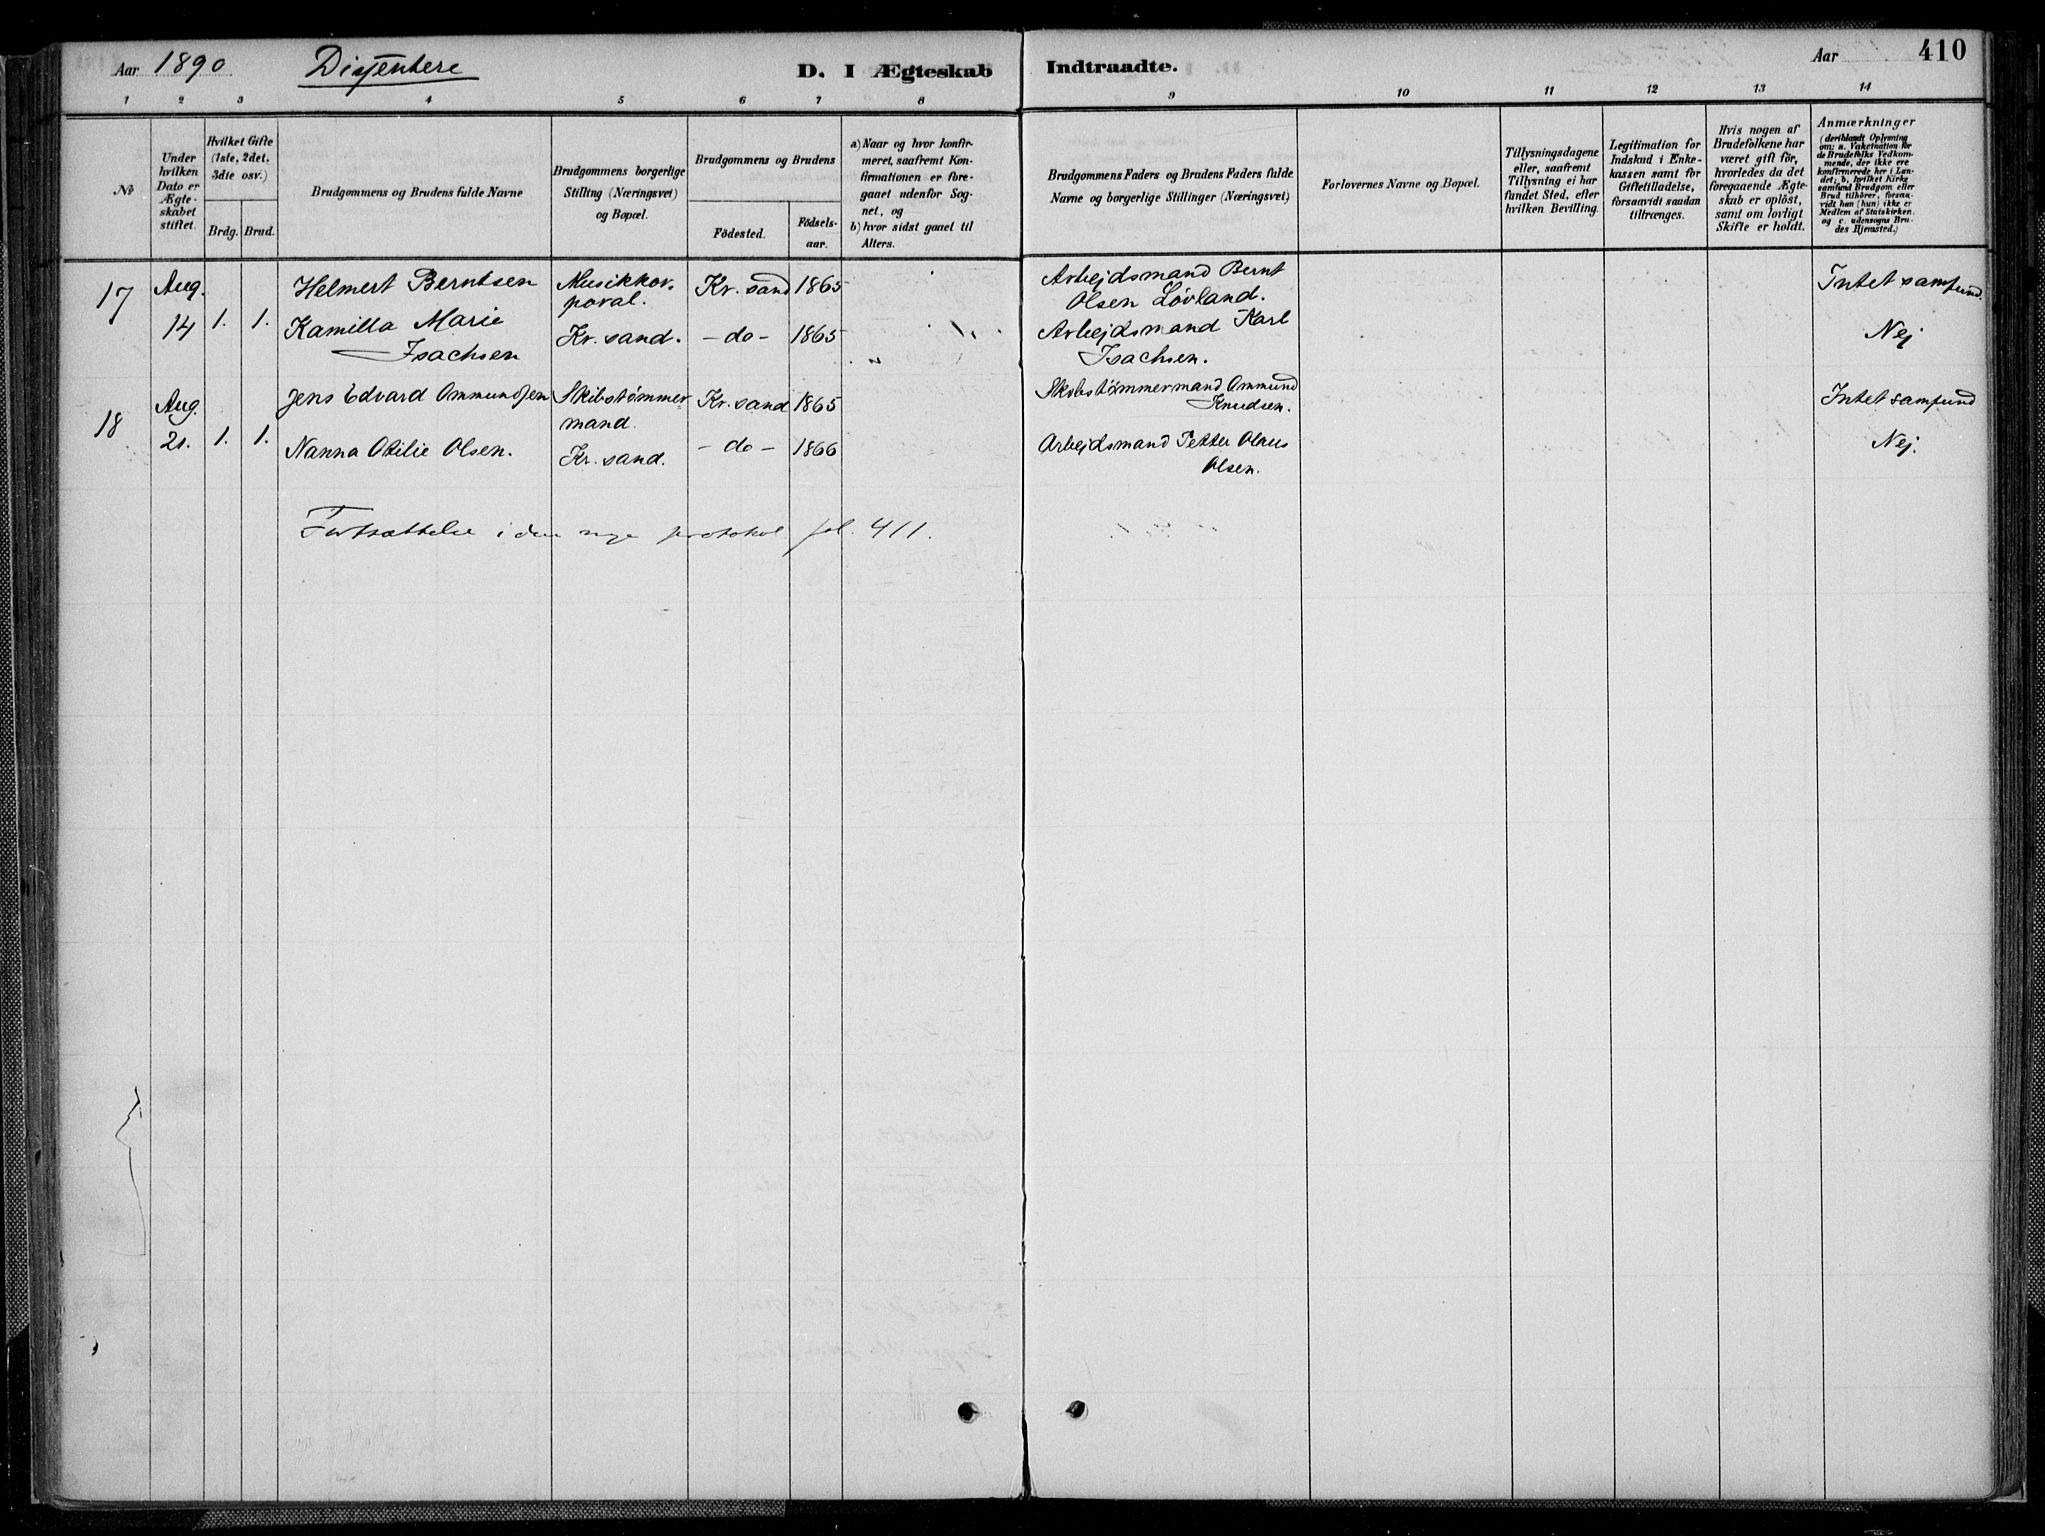 Aar 1890 Dissentere D. I Ægteskab Indtraadte. Aar 410
1 2 3 4 5 6 7 8 9 10 11 12 13 14
No
Under hvilken Dato er Ægte-skabet stiftet.
Hvilket Gifte (1ste, 2det, 3die osv.)
Brdg. Brud.
Brudgommens og Brudens fulde Navne
Brudgommens borgerlige Stilling (Næringsvei) og Bopæl.
Brudgommens og Brudens
Födested. Födsels-aar.
a) Naar og hvor konfir-
meret, saafremt Kon-
firmationen er fore-
gaaet udenfor Sog-
net, og
b) hvor sidst gaaet til
Alters.
Brudgommens Faders og Brudens Faders fulde
Navne og borgerlige Stillinger (Næringsvei)
Forlovernes Navne og Bopæl.
Tillysningsdagene
eller, saafremt
Tillysning ei har
fundet Sted, efter
hvilken Bevilling.
Legitimation for
Indskud i Enke-
kassen samt for
Giftetilladelse,
forsaavidt saadan
tiltrænges.
Hvis nogen af
Brudefolkene har
været gift för,
hvorledes da det
foregaaende Ægte-
skab er oplöst,
samt om lovligt
Skifte er holdt.
Anmærkninger
(deriblandt Oplysning
om: a. Vakcination for
de Brudefolks Vedkom-
mende, der ikke ere
konfirmerede her i Lan-
det; b. hvilket Kirke
samfund Brudgom eller
Brud tilhörer, forsaa-
vidt han (hun) ikke er
Medlem af Statskirken,
og c. udensogns Bru-
des Hjemsted.)
17 Aug. 14 1. 1.
Helmert Berntsen Musikkor-poral. Kr.sand 1865 Arbejdsmand Bernt Olsen Lövland. Intet samfund
Kamilla Marie Isachsen Kr.sand. - do - 1865 Arbejdsmand Karl Isachsen. Nej
18 Aug. 21. 1. 1.
Jens Edvard Ommundsen Skibstømmer mand. Kr.sand 1865 Skibstømmermand Ommund Knudsen. Intet samfund
Nanna Otilie Olsen. Kr.sand. - do - 1866 Arbejdsmand Petter Olaus Olsen. Nej.
Fortsættelse i den nye protokol fol. 411.